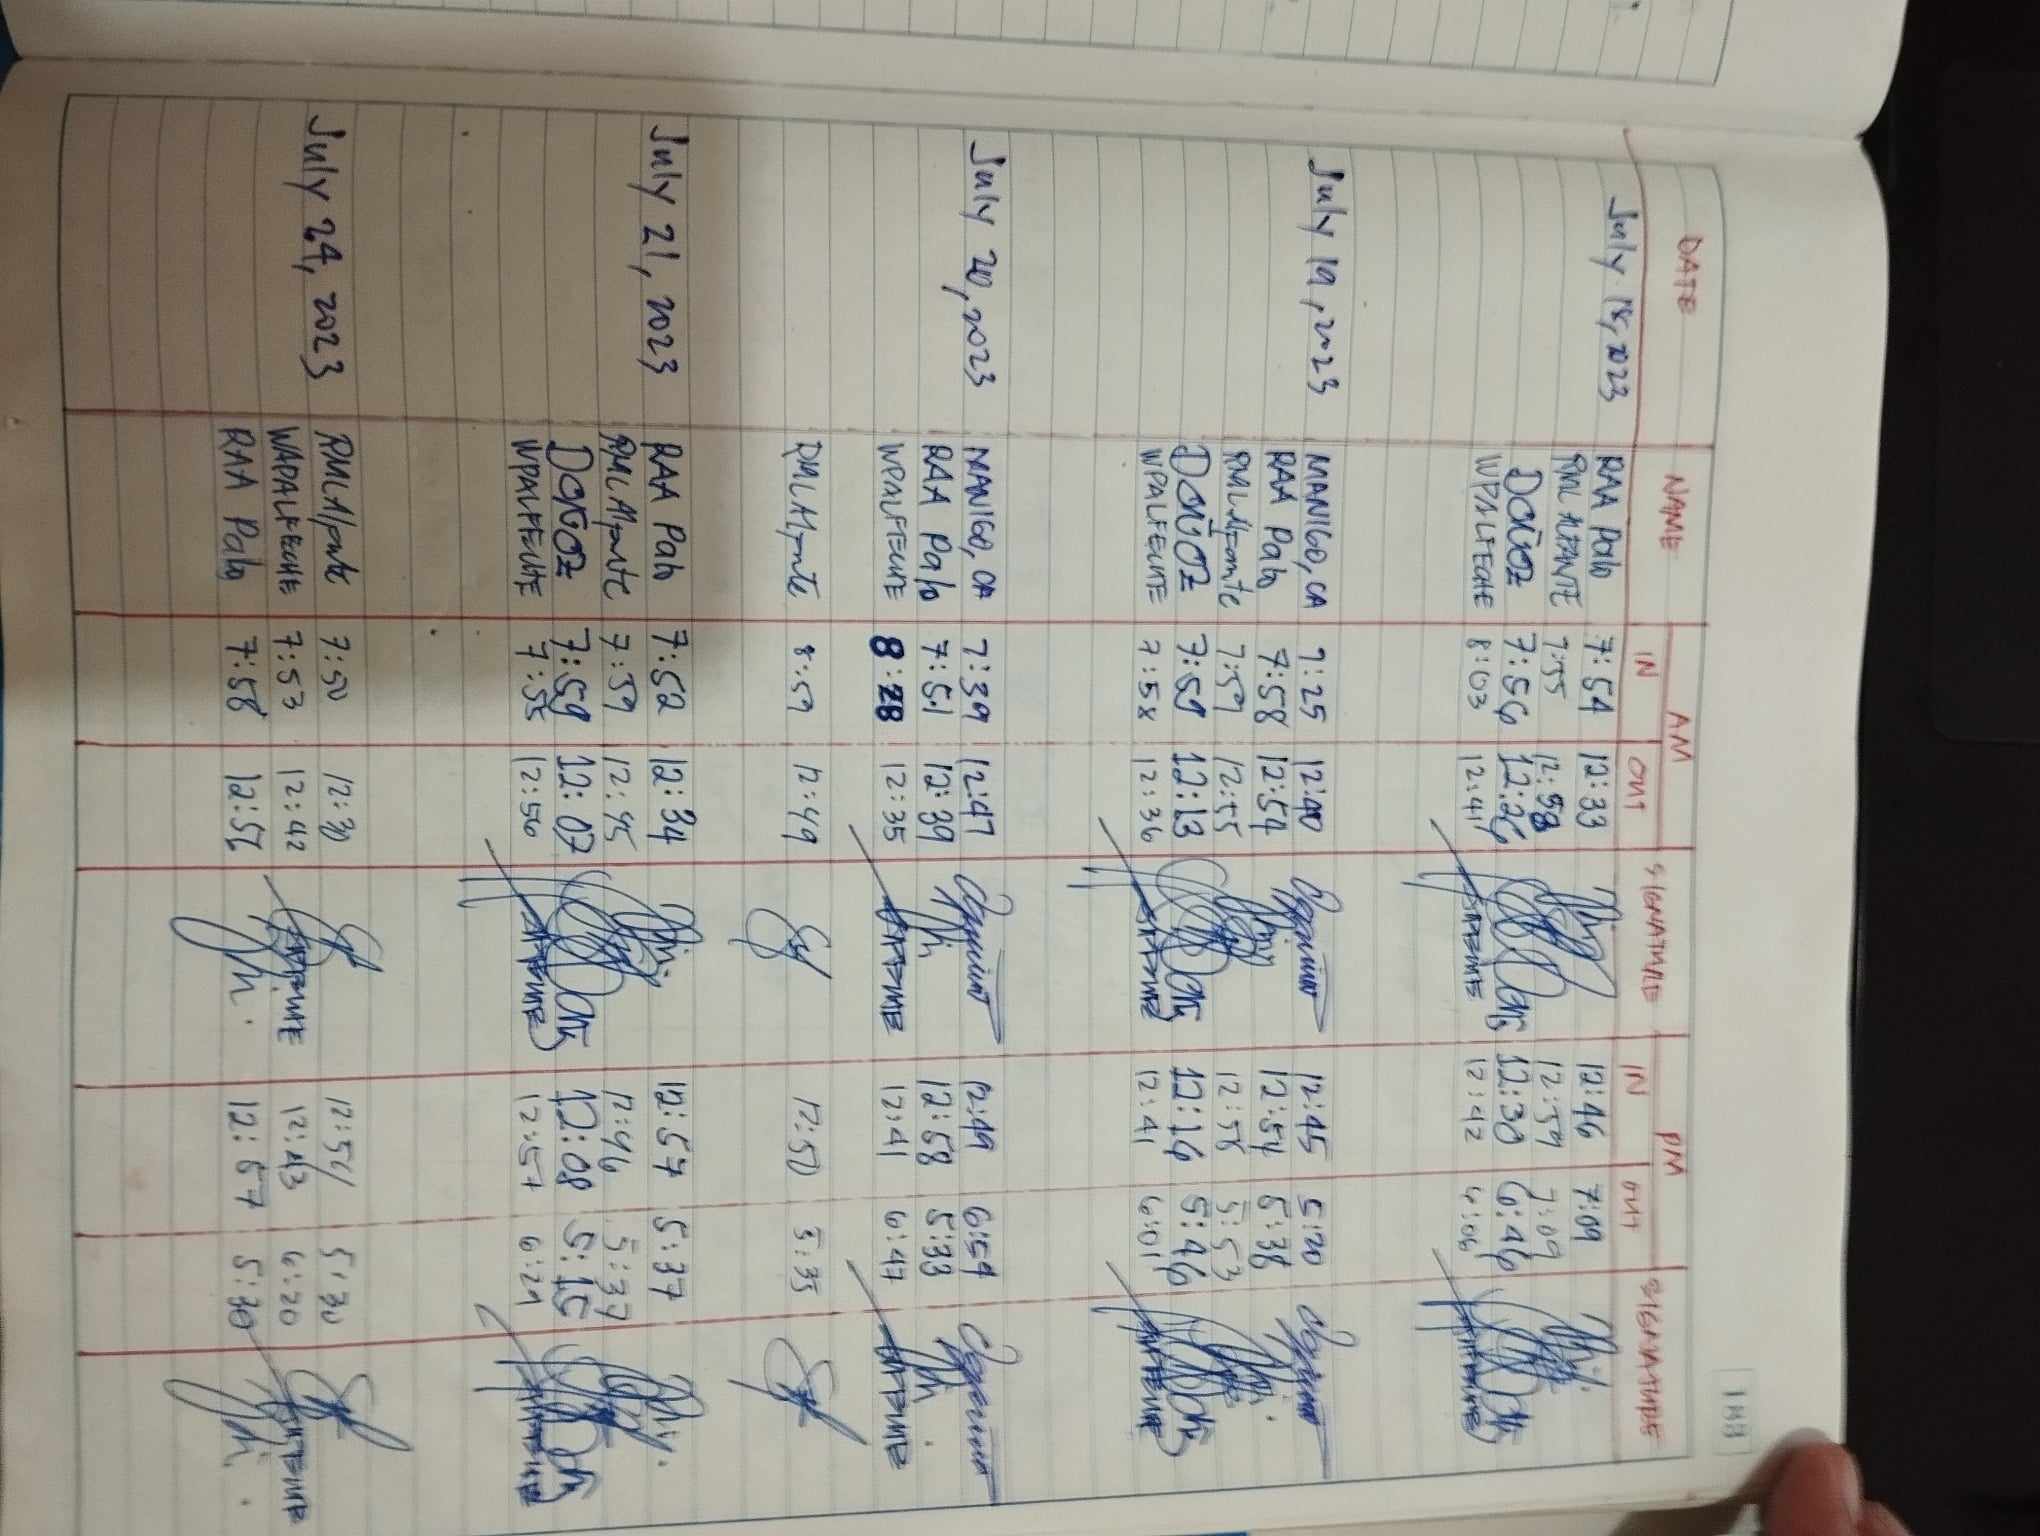 188
DATE NAME AM PM
IN OUT SIGNATURE IN OUT SIGNATURE
July 18, 2023 RAA Palo 7:54 12:33 12:46 7:09
RML ALPANTE 7:55 12:58 12:59 7:09
Doñoz 7:56 12:26 12:30 6:46
WPALFECHE 8:03 12:41 12:42
July 19, 2023 MANIGO, CA 7:25 12:40 12:45 5:20
RAA Palo 7:58 12:54 12:54 5:38
RMLAlpante 7:59 12:55 12:58 5:53
Doñoz 7:59 12:13 12:16 5:46
WPALFECHE 7:58 12:36 12:41 6:01
July 20, 2023 MANIGO, CA 7:39 12:47 12:49 6:54
RAA Palo 7:51 12:39 12:58 5:33
WPALFECHE 8:28 12:35 12:41 6:47
RMLAlpante 8:59 12:49 12:50 5:35
July 21, 2023 RAA Palo 7:52 12:34 12:57 5:37
RMLAlpante 7:59 12:45 12:46 5:37
Doñoz 7:59 12:07 12:08 5:15
WPALFECHE 7:55 12:56 12:57 6:29
July 24, 2023 RMLAlpante 7:50 12:30 12:56 5:30
WAPALFECHE 7:53 12:42 12:43 6:20
RAA Palo 7:58 12:52 12:57 5:30